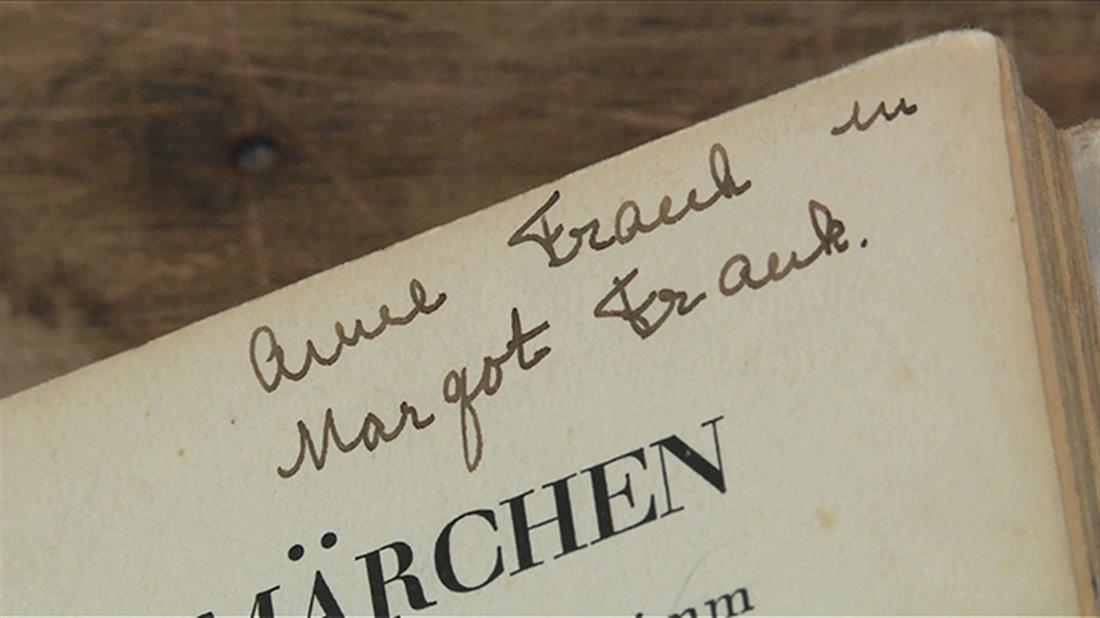 Anne Frank en
Margot Frank.
MÄRCHEN